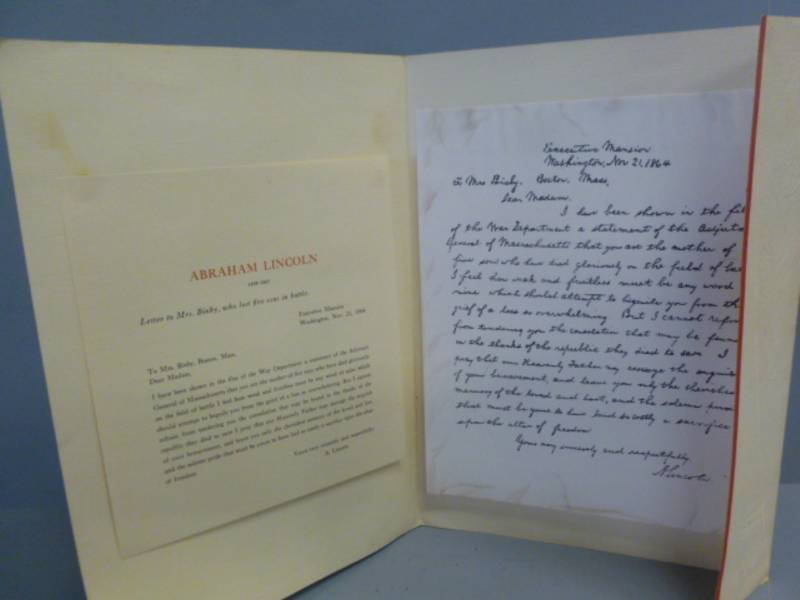 ABRAHAM LINCOLN
Letter to Mrs. Bixby, who lost five sons in battle.
Executive Mansion
Washington, Nov. 21, 1864
To Mrs. Bixby, Boston, Mass.
Dear Madam,
I have been shown in the files of the War Department a statement of the Adjutant
General of Massachusetts that you are the mother of five sons who have died gloriously
on the field of battle I feel how weak and fruitless must be any word of mine which
should attempt to beguile you from the grief of a loss so overwhelming. But I cannot
refrain from tendering you the consolation that may be found in the thanks of the
republic they died to save I pray that our Heavenly Father may assuage the anguish
of your bereavement, and leave you only the cherished memory of the loved and lost,
and the solemn pride that must be yours to have laid so costly a sacrifice upon the altar
of freedom
Yours very sincerely and respectfully
A. Lincoln
Executive Mansion
Washington, Nov 21, 1864
To Mrs Bixby, Boston, Mass,
Dear Madam,
I have been shown in the
of the War Department a statement of the
General of Massachusetts that you are the mother of
five sons who have died gloriously on the field of
I feel how weak and fruitless must be any word
mine which should attempt to beguile you from
grief of a loss so overwhelming But I cannot
from tendering you the consolation that may be found
in the thanks of the republic they died to save I
pray that our Heavenly Father may assuage the
of your bereavement, and leave you only the
memory of the loved and lost, and the solemn
that must be yours to have laid so costly a sacrifice
upon the altar of freedom
Yours very sincerely and respectfully
A Lincoln